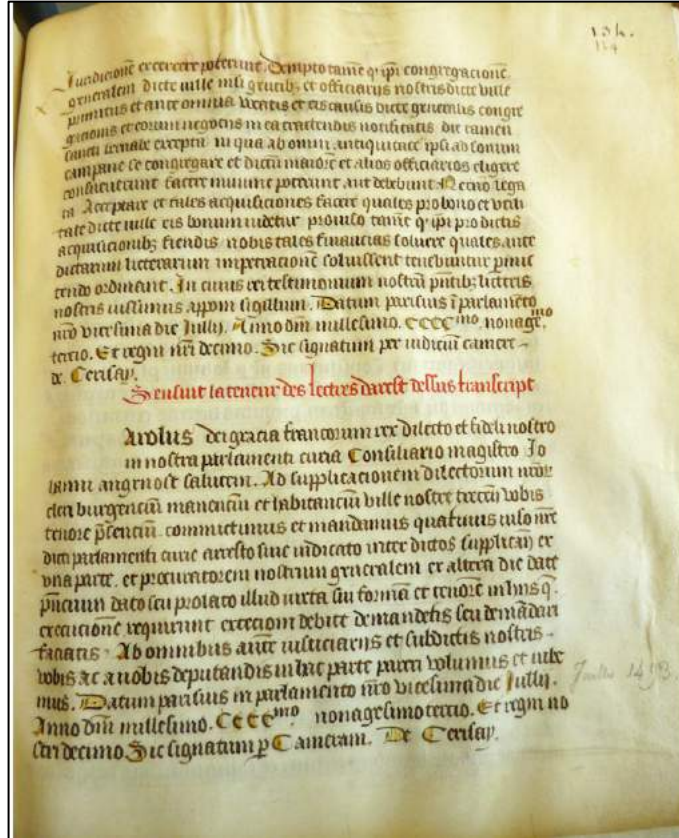 134.
124
Iuridicionē exercere poterunt. Dempto tamē q' ip̄i congregacionē
generalem dicte ville nisi gentibz et officiariis nostris dicte ville
primitus et ante omnia vocatis et eis causis dicte generalis congre
gacionis et eorum negociis in ea tractendis notificatis die tamen
sancti exceptū in qua ab omni antiquitate ipsi ad sonum
campane se congregare et dictū maiorē et alios officiarios eligere
consueverunt facere minime poterunt aut debebunt. Necnō lega
ta Acceptare et tales acquisiciones facere quales pro bono et utili
tate dicte ville eis bonum videtur proviso tamē q' ip̄i pro dictis
acquisicionibz fiendis nobis tales financias solvere quales ante
dictarum litterarum impetracionē solvissent tenebuntur
ordinent. In cuius rei testimonium nostrū pn̄tibz litteris
nostris iussimus apponi sigillum. Datum parisius ī parlamēto
nr̄o vicesima die Jullij. Anno dn̄i millesimo. CCCC mo. nonage. mo
tercio. Et regni nr̄i decimo. Sic signatum per iudiciū camere -
de Cerisay.
Sensuit la teneur des lectres darest dessus transcript
Arolus dei gracia francorum rex dilecto et fideli nostro
in nostra parlamenti curia Consiliario magistro Jo
hanni salutem. Ad supplicacionem dilectorum nr̄or
burgenciū manenciū et habitanciū ville nostre vobis
tenore p̄senciū commictimus et mandamus quatinus viso nr̄e
dicti parlamenti curie arresto sive iudicato inter dictos supplicañ ex
vna parte. et procuratorem nostrum generalem ex altera die date
pn̄cium dato seu prolato illud iuxta sui formā et tenorē in hiis q.
execucionē requirunt execcioni debite demandetis seu demādari
faciatis. Ab omnibus aut̄e iusticiariis et subdictis nostris -
vobis ac a vobis deputandis in hac parte pareri volumus et iube
mus. Datum parisius in parlamento nr̄o vicesima die Jullij.
Anno dn̄i millesimo. CCCC mo nonagesimo tercio. Et regni no
stri decimo. Sic signatum p Cameram. De Cerisay.
1493.